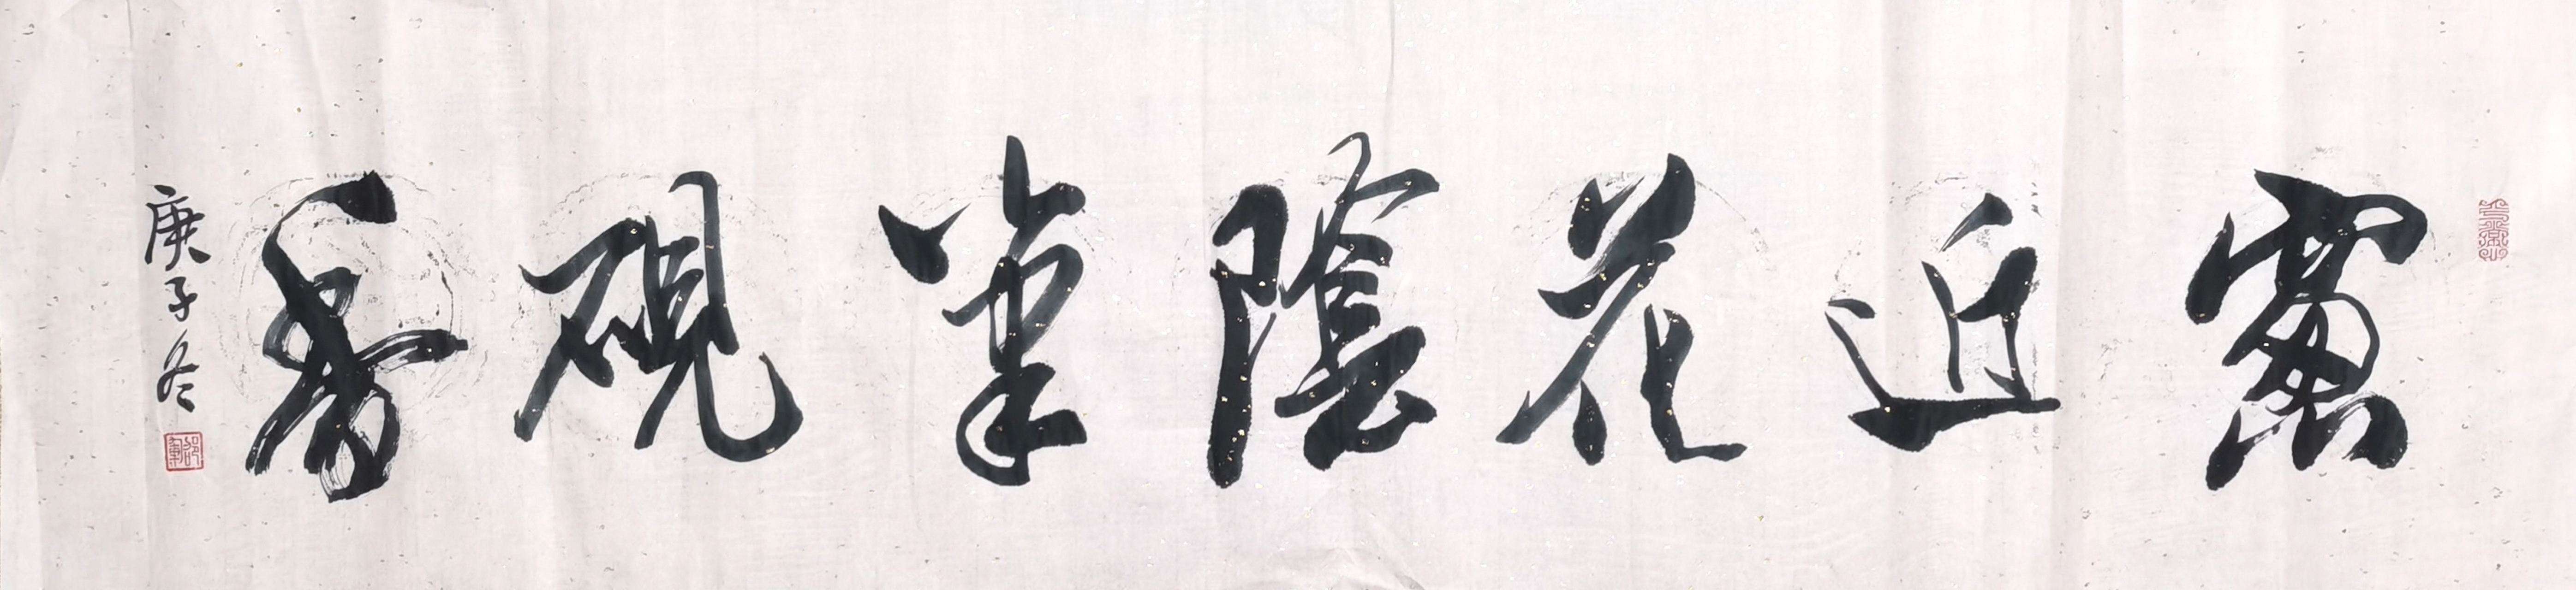 窗近花陰筆硯香
庚子冬